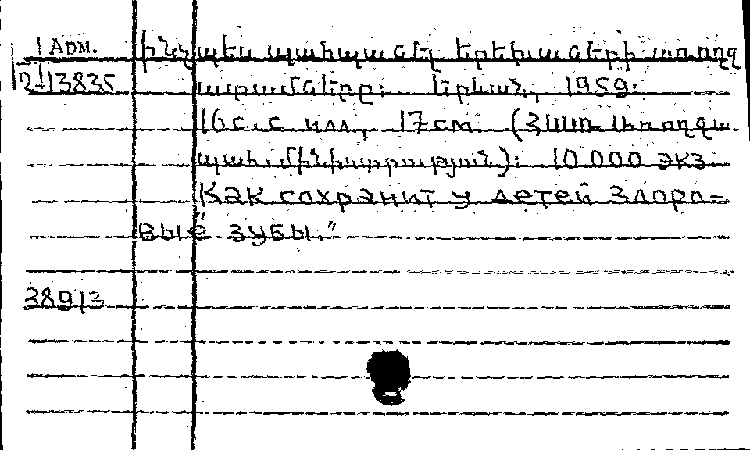 1 Adm.
2-13835
Ինչպես պահպանել երեխաների առողջ
ատամները: Երևան, 1959:
16с.с илл., 17см. (Հայ. առողջա-
պահ. մինիստրություն): 10.000 экз.
"Как сохранит у детей здоро-
вые зубы."
38913